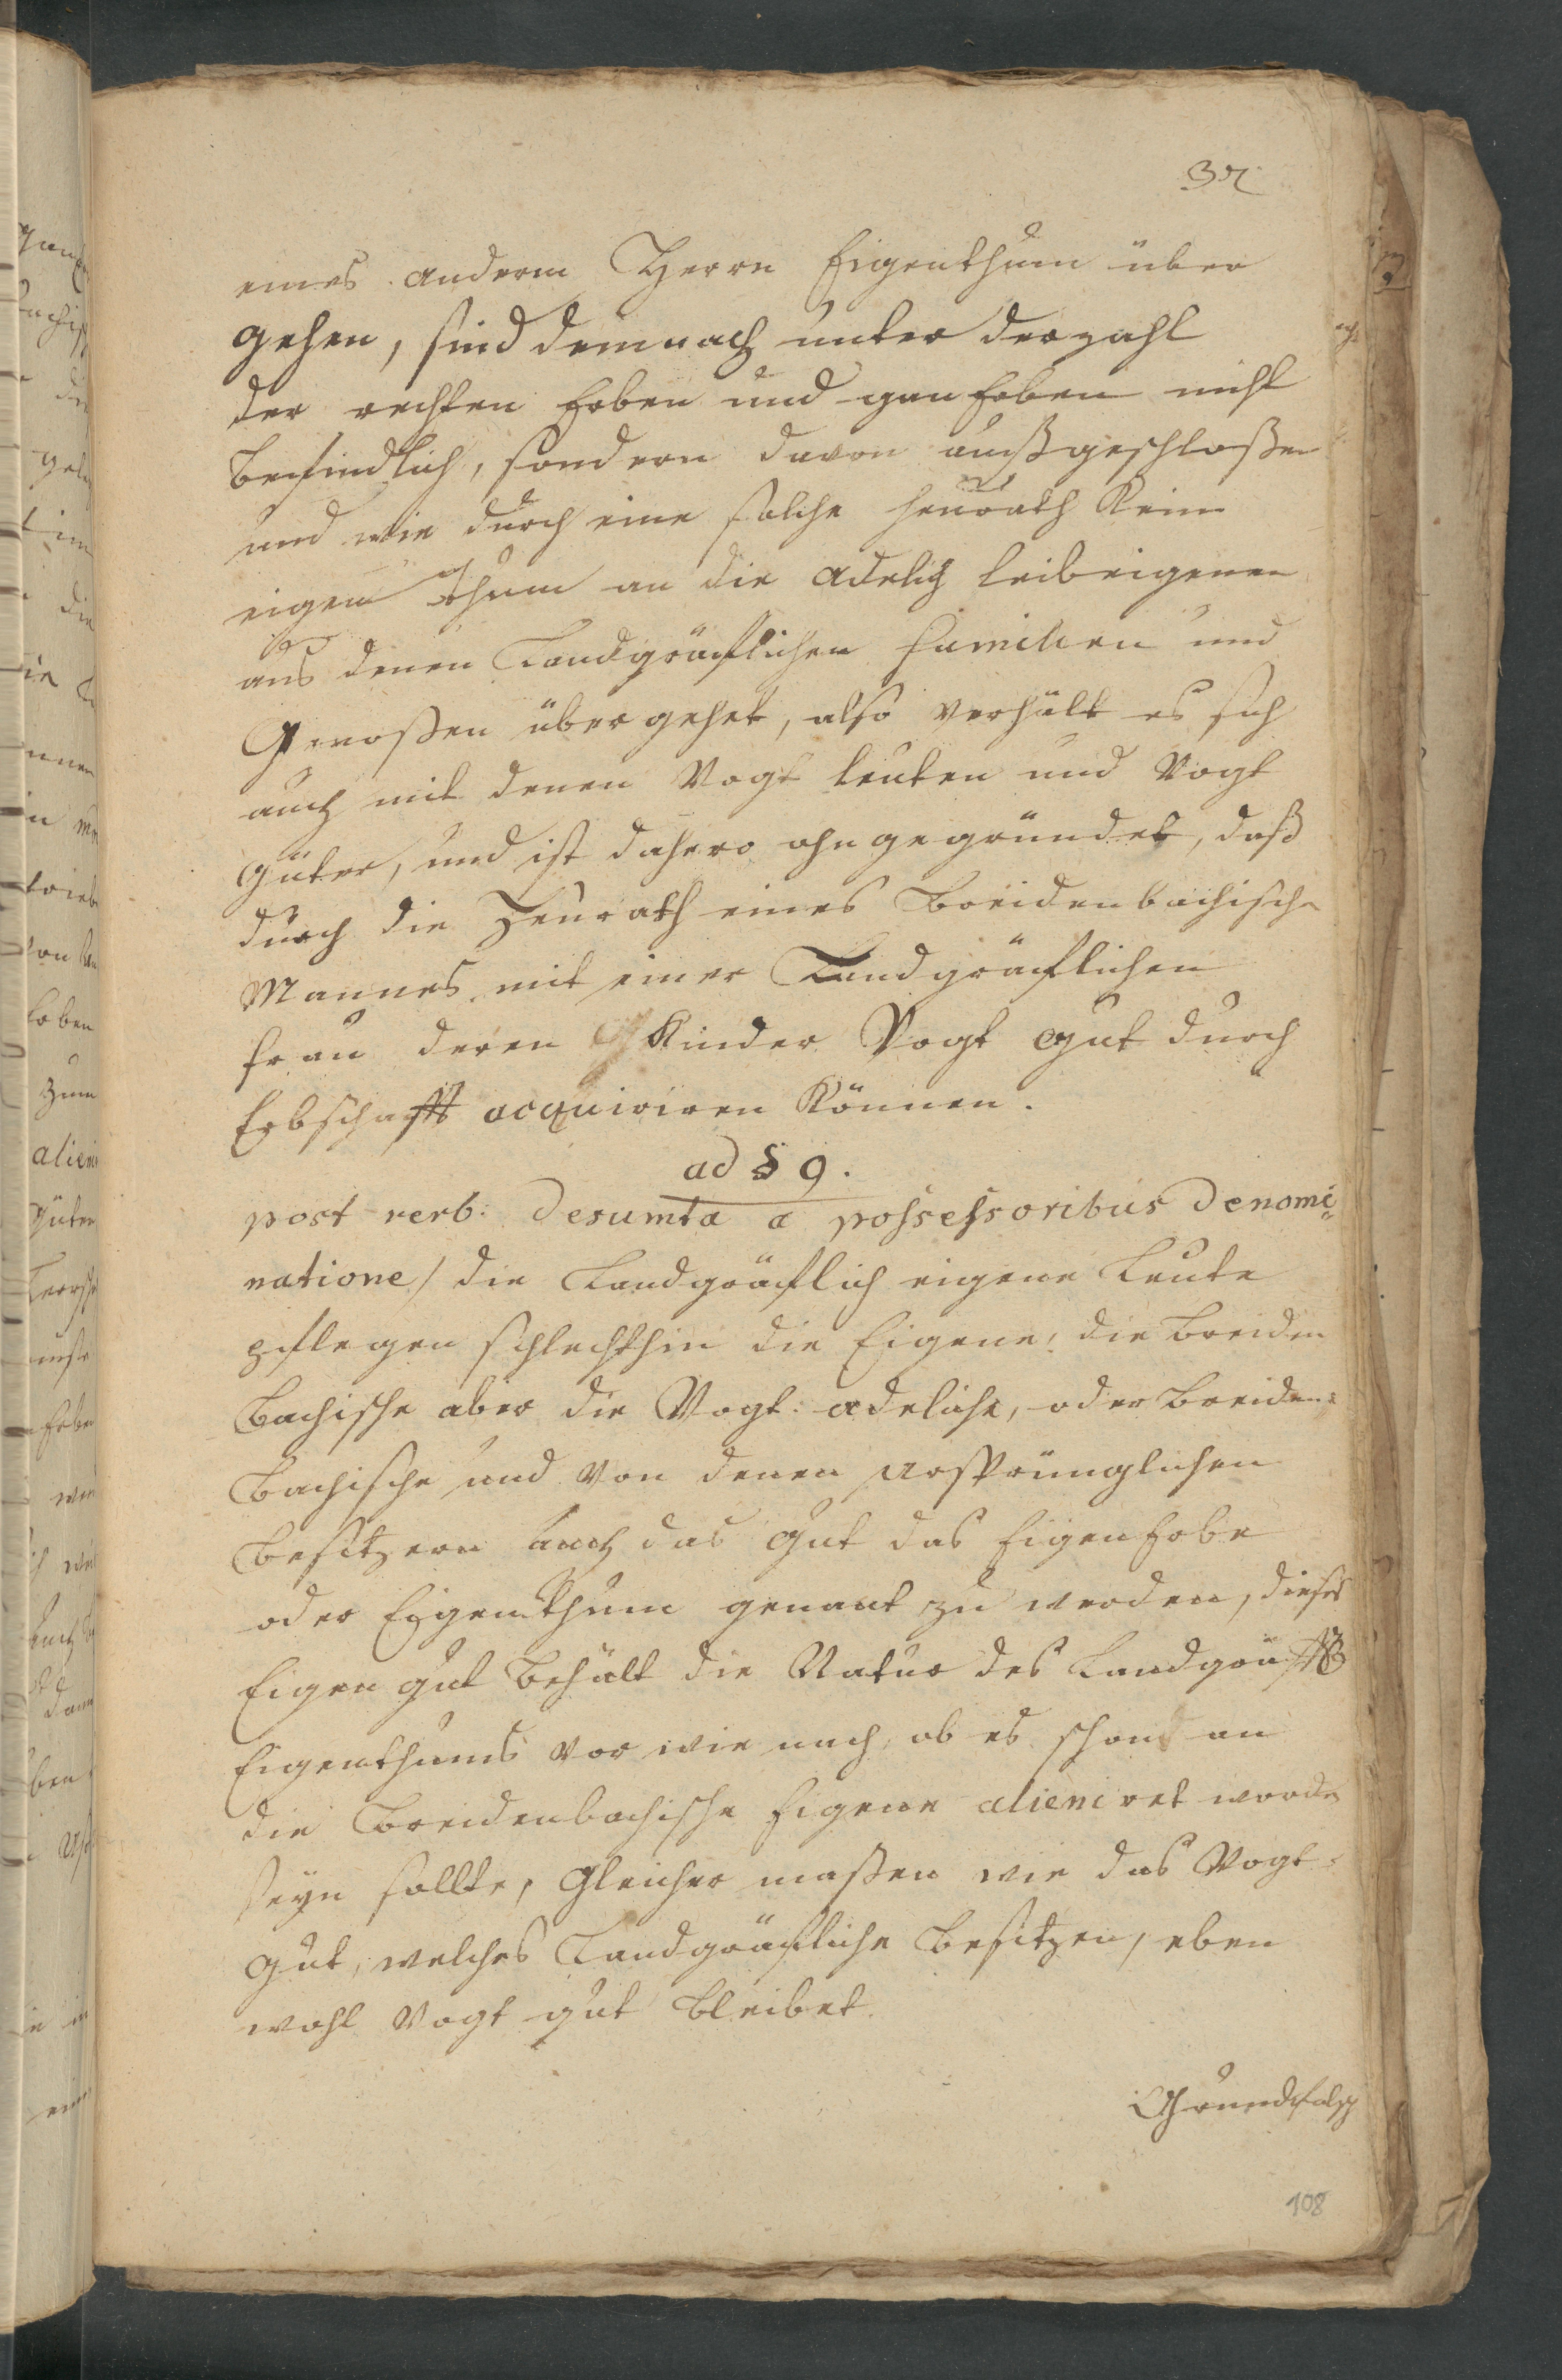 eines anderm Herrn Eigenthum über
gehen, sind demnach unter derzahl
der rechten Erben und ganErben nicht
befindlich, sondern davon außgeschloßen
und wie durch eine solche heurath Kein
eigen thum an die adelich leibeigenen
aus denen Landgräflichen familien und
Genoßen übergehet, also verhält es sich
auch mit denen Vogt leuten und Vogt
güter, und ist dahero ohngegründet, daß
durch die Heurath eines Breidenbachisch
Mannes mit einer Landgräflichen
frau deren Kinder Vogt gut durch
Erbschafft acquiriren Können.
ad § 9.
post verb: desumta a possessoribus denomi=
natione/ die Landgräflich eigene Leute
pflegen schlechthin die Eigene, die breiden
bachische aber die Vogt: adeliche, oder breiden=
bachische und von denen ursprünglichen
besitzern auch das gut das EigenErbe
oder Eigenthum genant zu werden, dieses
Eigen gut behält die Natur des Landgräffl
Eigenthums vor wie nach, ob es schon an
die Breidenbachische Eigene alieniret worden
seyn sollte, gleicher maßen wie das Vogt=
gut, welches Landgräfliche besitzen, eben
wohl Vogt gut bleibet.
108